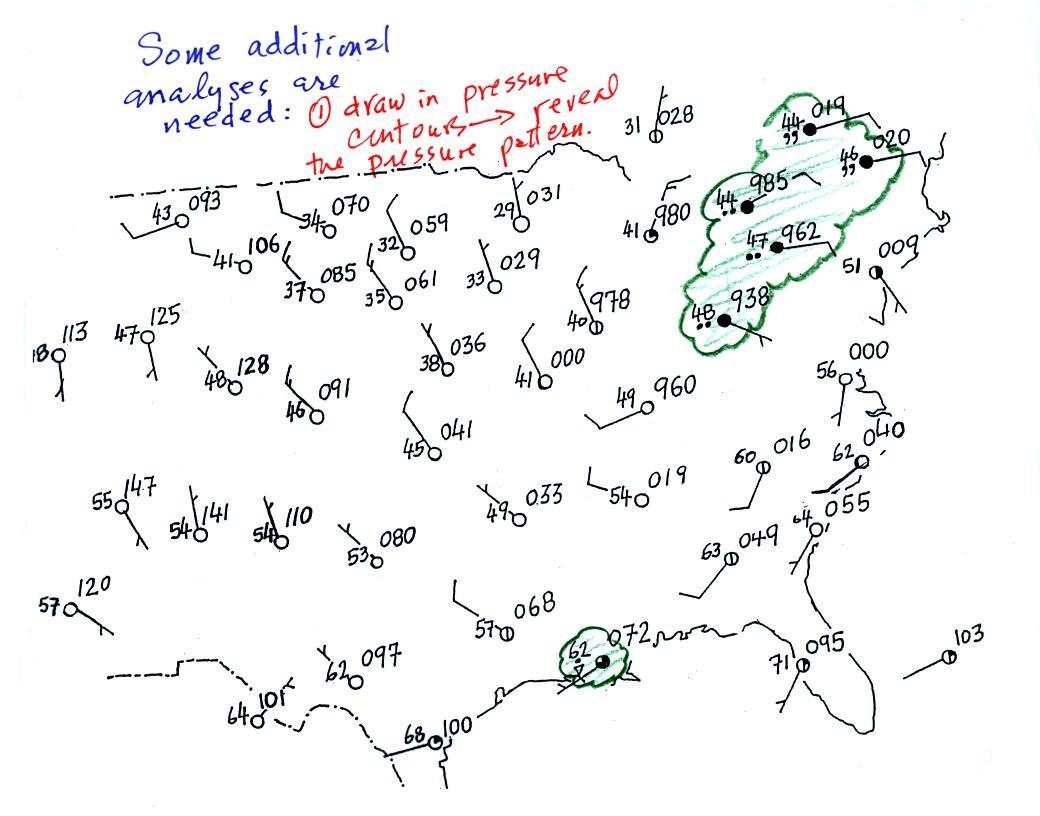 Some additional
analyses are
needed: ① draw in pressure
contours → reveal
the pressure pattern.
31 028
44 019
46 020
43 093
34 070
32 059
29 031
41 980
44 985
41 106
37 085
35 061
33 029
47 962
51 009
18 113
47 125
40 978
48 938
48 128
38 036
41 000
56 000
46 091
49 960
45 041
60 016
62 040
55 147
54 141
54 110
49 033
54 019
64 055
53 080
63 049
57 120
57 068
62 072
62 097
71 095
103
64 101
68 100